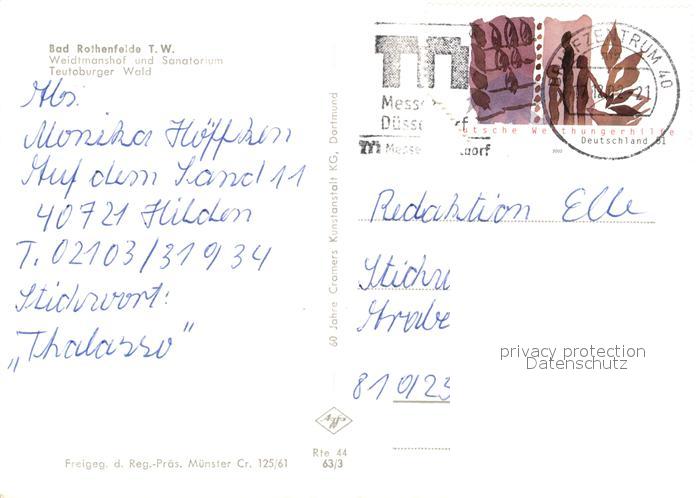 Bad Rothenfelde T. W.
Weidtmanshof und Sanatorium
Teutoburger Wald
Abs.
Monika Höffken
Auf dem Sand 11
40721 Hilden
T. 02103/31934
Stichwort:
„Thalasso"
60 Jahre Cramers Kunstanstalt KG, Dortmund
Messe
Düss
dorf
Messe
dorf
BRIEFZENTRUM 40
-21
Deutsche Welthungerhilfe
Deutschland 51
2002
Redaktion Elle
Stichw
Arabe
81 0/23
privacy protection
Datenschutz
Agfa
Rte 44
63/3
Freigeg. d. Reg.-Präs. Münster Cr. 125/61